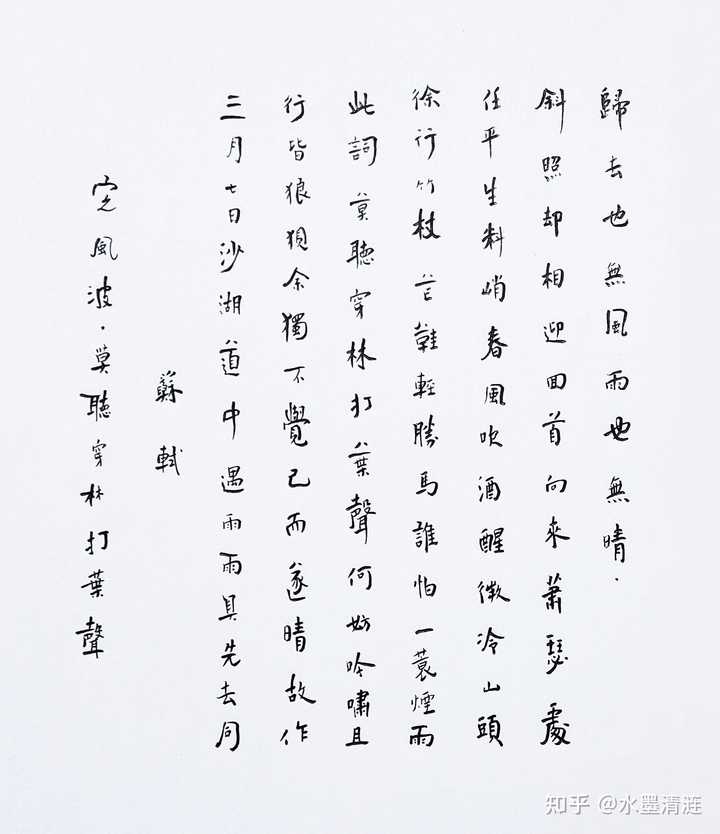 定風波·莫聽穿林打葉聲
蘇軾
三月七日沙湖道中遇雨雨具先去同
行皆狼狽余獨不覺已而遂晴故作
此詞莫聽穿林打葉聲何妨吟嘯且
徐行竹杖芒鞋輕勝馬誰怕一蓑煙雨
任平生料峭春風吹酒醒微冷山頭
斜照却相迎回首向來蕭瑟處
歸去也無風雨也無晴·
知乎 @水墨清涟